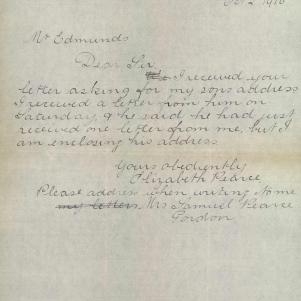 Mr Edmunds
Dear Sir,
I received your
letter asking for my sons address
I received a letter from him on
Saturday, & he said he had just
received one letter from me, but I
am enclosing his address
Yours obediently
Elizabeth Pearce
Please address when writing to me
my letters Mrs Samuel Pearce
Pordon